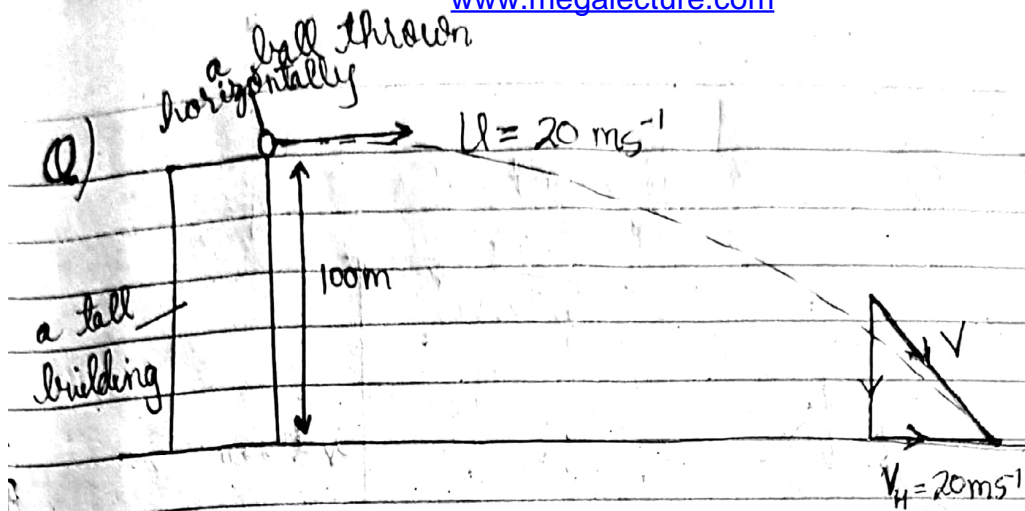 www.megalecture.com
a ball thrown
horizontally
Q)
U = 20 ms⁻¹
100m
a tall
building
V
V_H = 20ms⁻¹